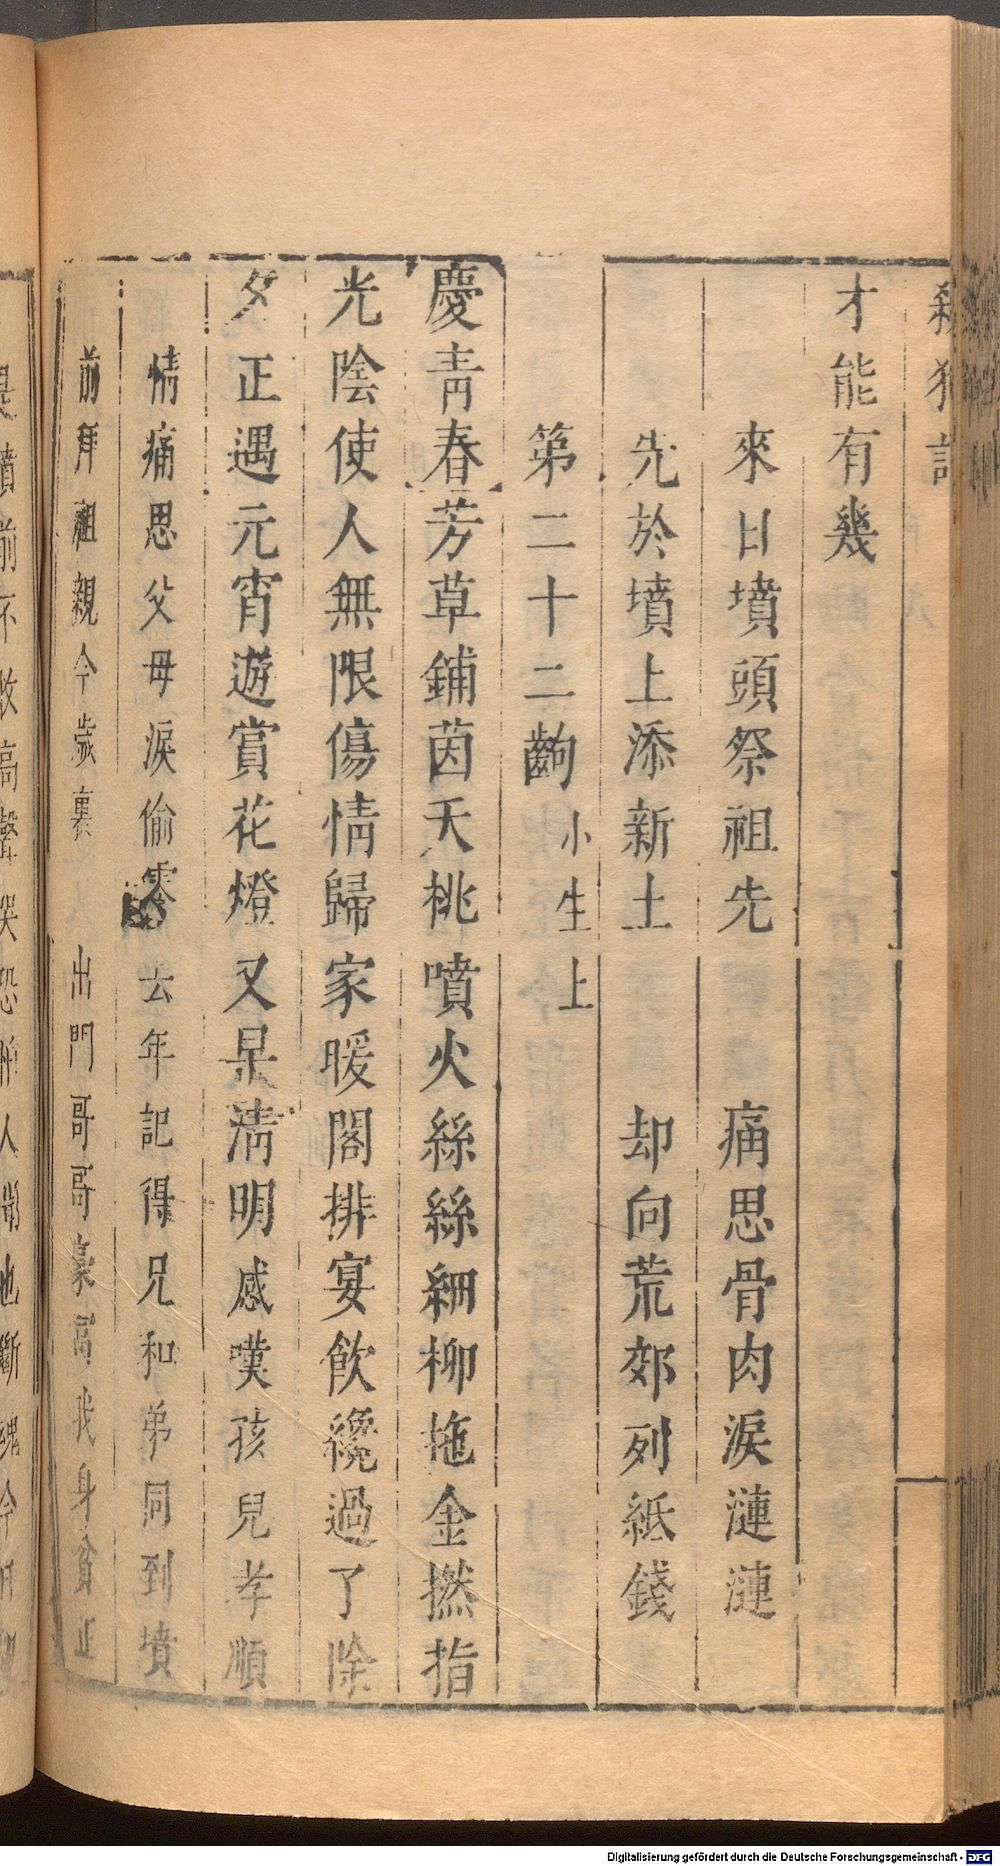 殺狗記
才能有幾
來日墳頭祭祖先 痛思骨肉淚漣漣
先於墳上添新土 却向荒郊列紙錢
第二十二齣 小生上
慶青春芳草鋪茵夭桃噴火絲絲細柳拖金撚指
光陰使人無限傷情歸家暖閣排宴飲纔過了除
夕正遇元宵遊賞花燈又是清明感嘆孩兒孝順
情痛思父母淚偷零去年記得兄和弟同到墳
前拜祖親今歲裏 出門哥哥豪富我身貧止
墳前不敢高聲哭恐怕人聞也斷魂今
Digitalisierung gefördert durch die Deutsche Forschungsgemeinschaft - DFG